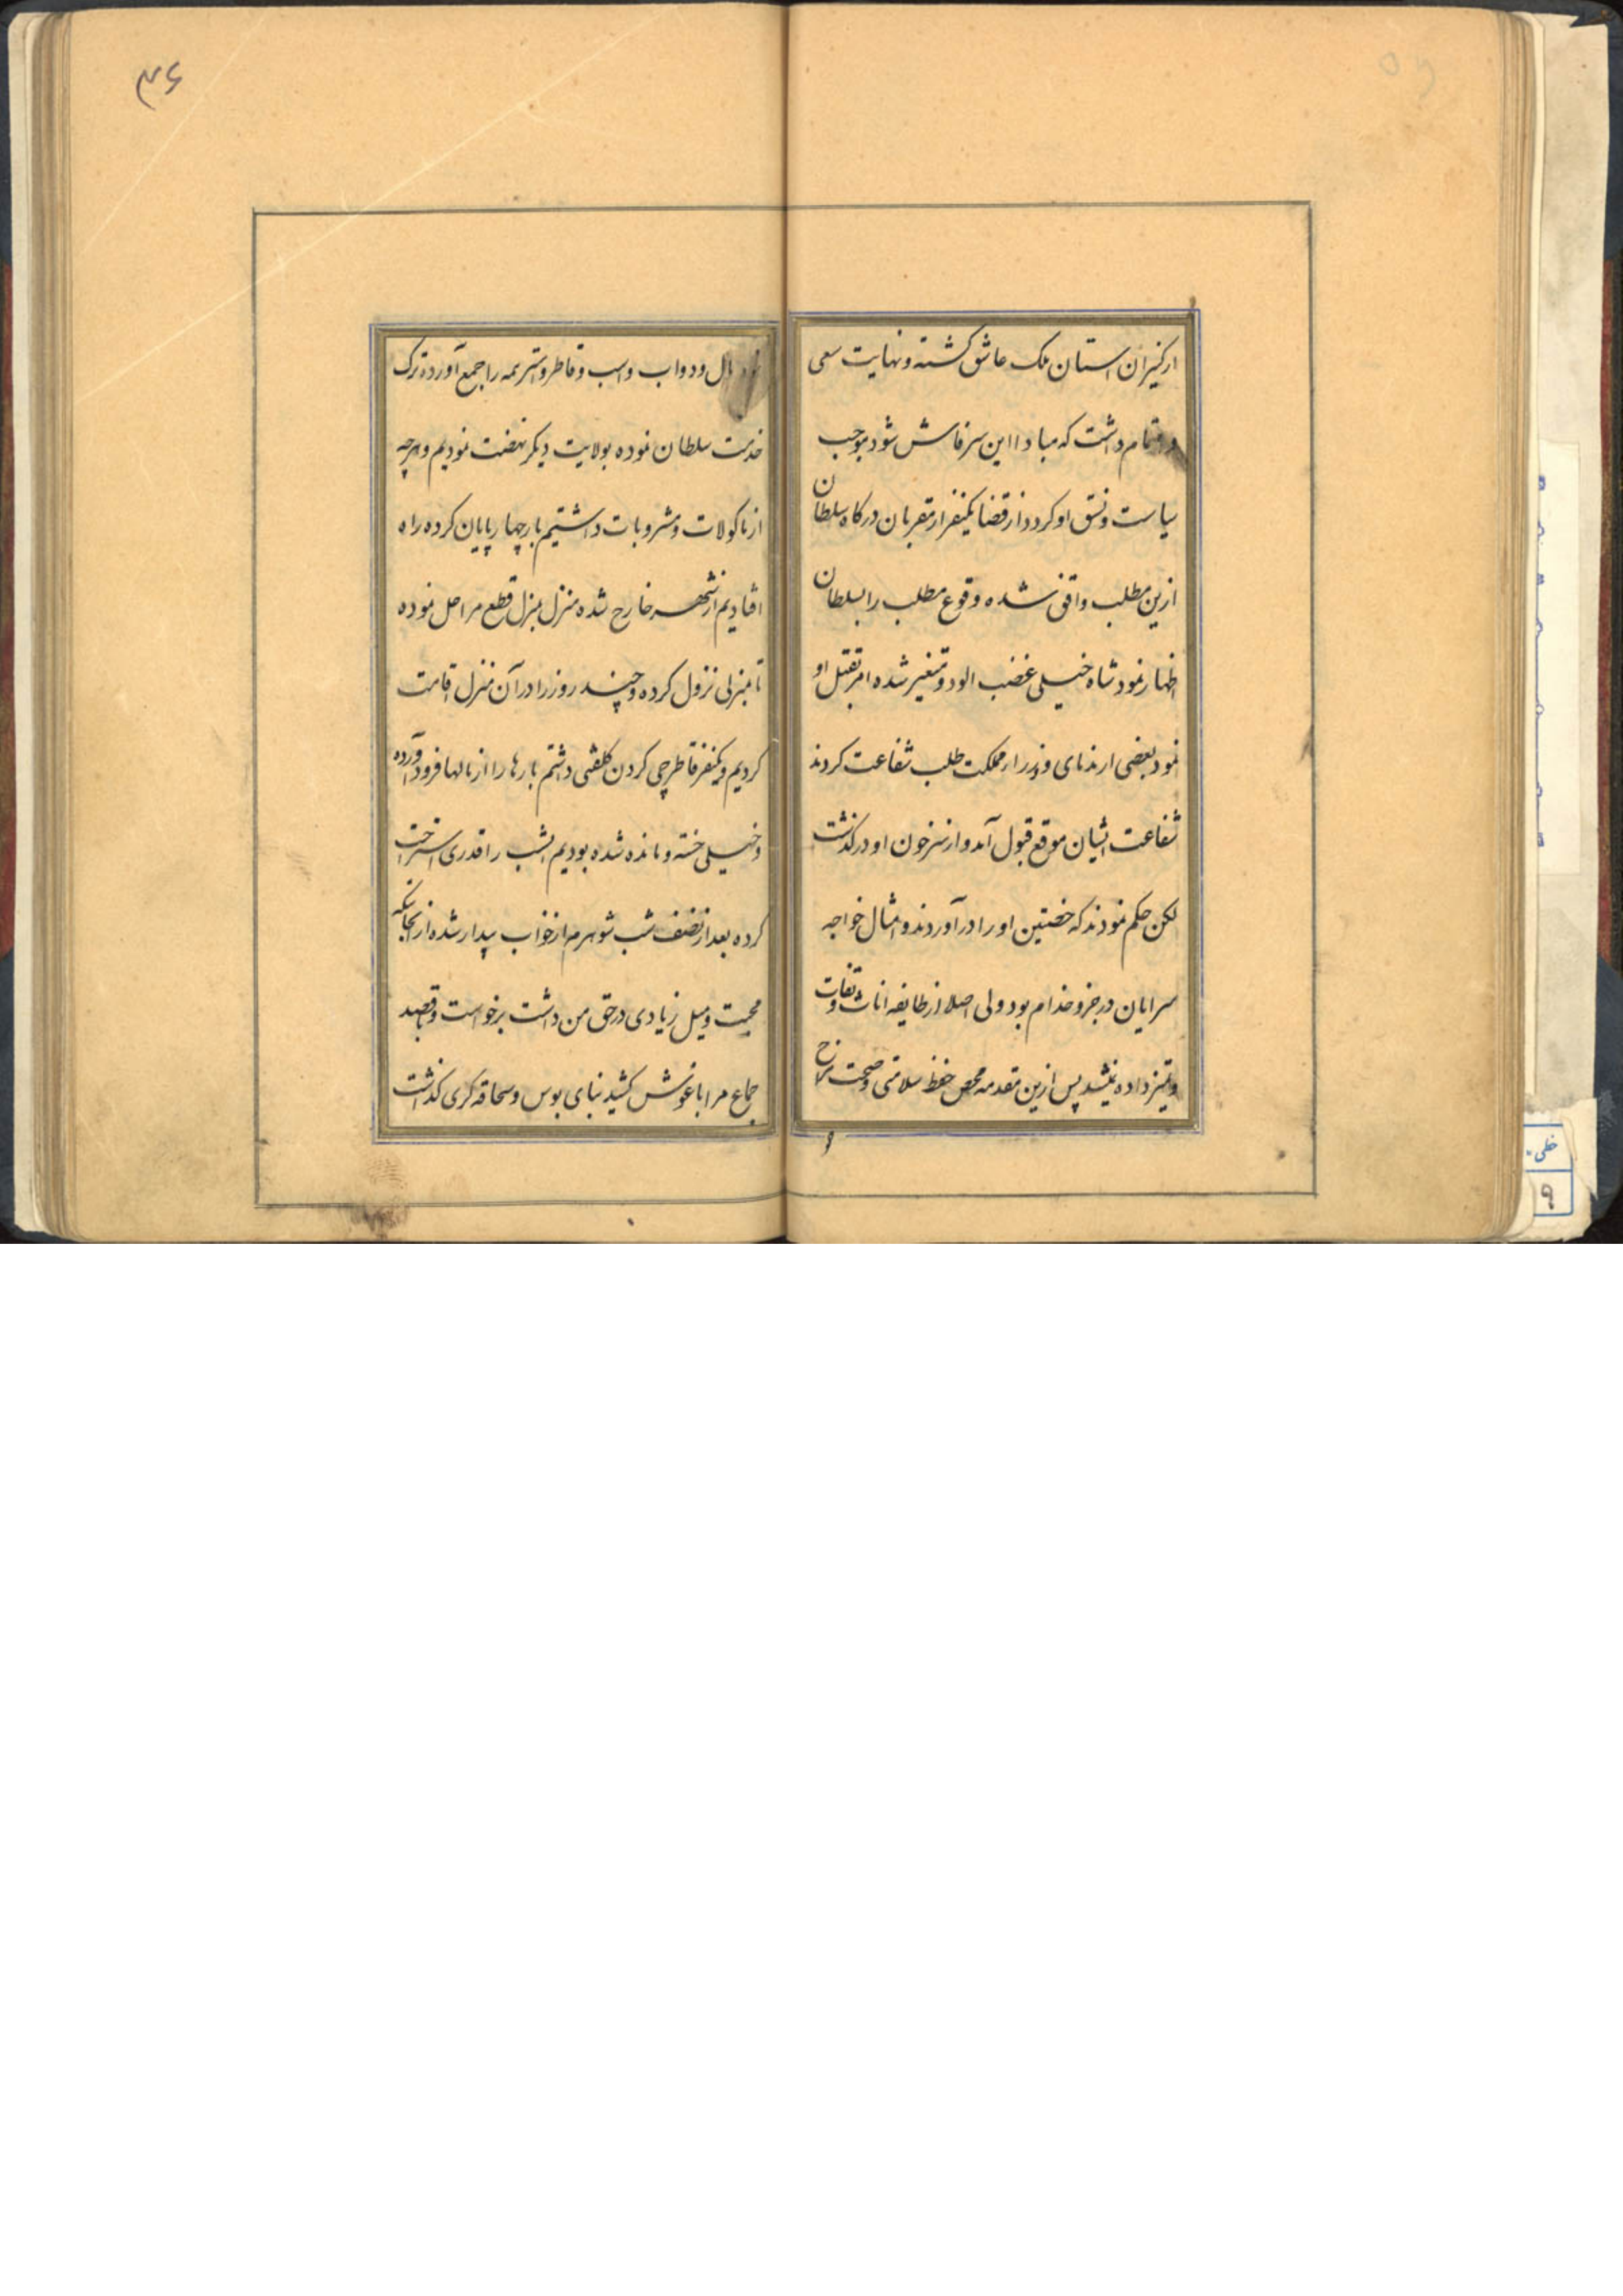 از کنیزان استان ملک عاشق گشته و نهایت سعی
و اهتمام داشت که مبادا این سر فاش شود بموجب
سیاست و نسق او کردد از قضا یکنفر از مقربان درکاه سلطان
ازین مطلب واقف شده وقوع مطلب را بسلطان
اظهار نمود شاه خیلی غضب الود و متغیر شده امر بقتل او
نمود بعضی از ندمای وزراء مملکت طلب شفاعت کردند
شفاعت ایشان موقع قبول آمد و از سر خون او در کذشت
لکن حکم نمودند که خصیتین او را در آوردند و امثال خواجه
سرایان در جزو خدام بود ولی اصلا از طایفه اناث
و تمیز داده نمیشد پس ازین مقدمه محض حفظ سلامتی و صحت مزاج
و
۴۶
مال و دواب و اسب و قاطر و استر همه را جمع آورده ترک
خدمت سلطان نموده بولایت دیکر نهضت نمودیم و هرچه
از ماکولات و مشروبات داشتیم بار چهار پایان کرده راه
افتادیم از شهر خارج شده منزل بمنزل قطع مراحل نموده
تا بمنزلی نزول کرده و چند روز را در آن منزل اقامت
کردیم و یکنفر قاطرچی کردن کلفتی داشتم بارها را از مالها فرود آورده
و خیلی خسته و مانده شده بودیم امشب را قدری استراحت
کرده بعد از نصف شب شوهرم از خواب بیدار شده از آنجائیکه
محبت و میل زیادی در حق من داشت برخواست و بقصد
جماع مرا باغوش کشید بنای بوس و سحاقه کری کذاشت
خطی
۹